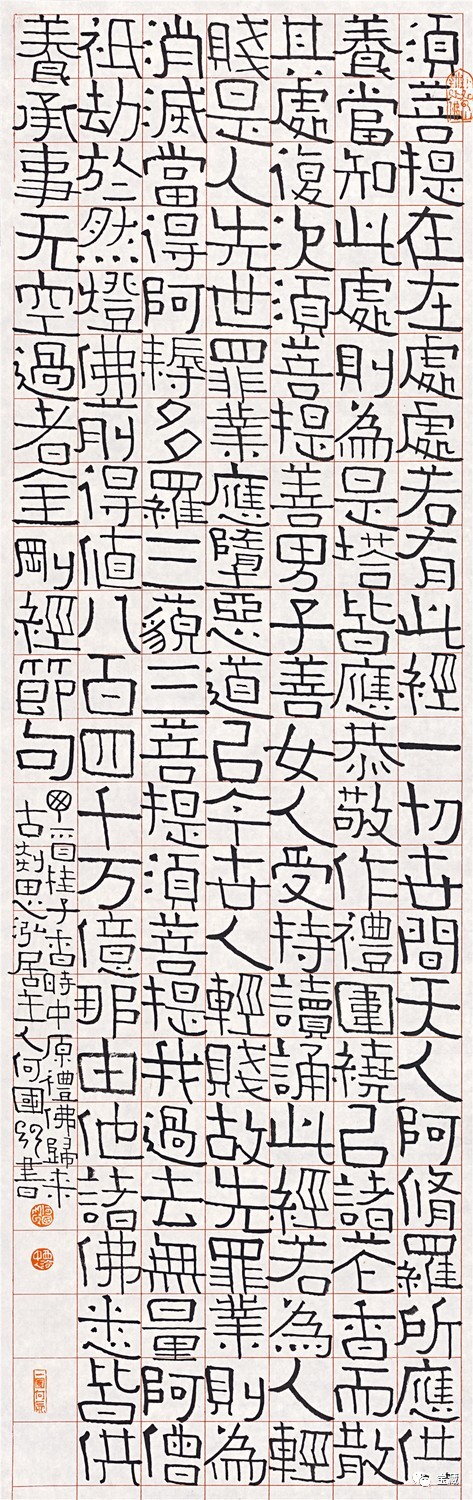 須菩提在在處處若有此經一切世間天人阿脩羅所應供
養當知此處則為是塔皆應恭敬作禮圍繞㠯諸花香而散
其處復次須菩提善男子善女人受持讀誦此經若為人輕
賤是人先世罪業應墮惡道㠯今世人輕賤故先罪業則為
消滅當得阿耨多羅三藐三菩提須菩提我過去無量阿僧
祇劫於然燈佛前得值八百四千万億那由他諸佛悉皆供
養承事无空過者金剛經節句
桂子香時中原禮佛歸來
古剡思泓居主人何國門書